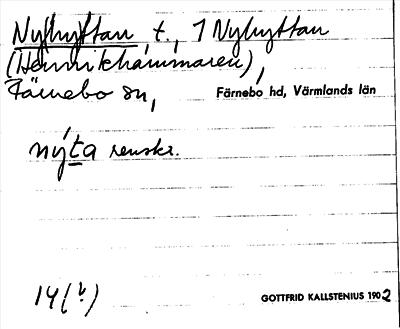 Nyhyttan, t., 1 Nyhyttan
(Henrikhammaren),
Färnebo sn, Färnebo hd, Värmlands län
nýta renskr.
14(?)
GOTTFRID KALLSTENIUS 1902